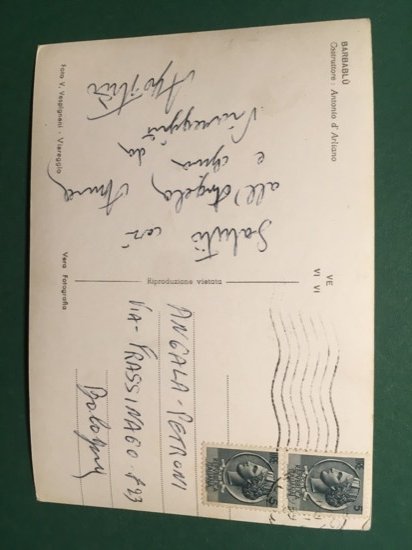 BARBABLÙ
Costruttore : Antonio d' Arliano
Saluti
all'Angela
e da
Viareggio
Foto V. Vespignani - Viareggio
Riproduzione vietata
Vera Fotografia
VE
VI VI
ANGALA - PETRONI
VIA - FRASSINAGO . F 23
Bologna
5
5